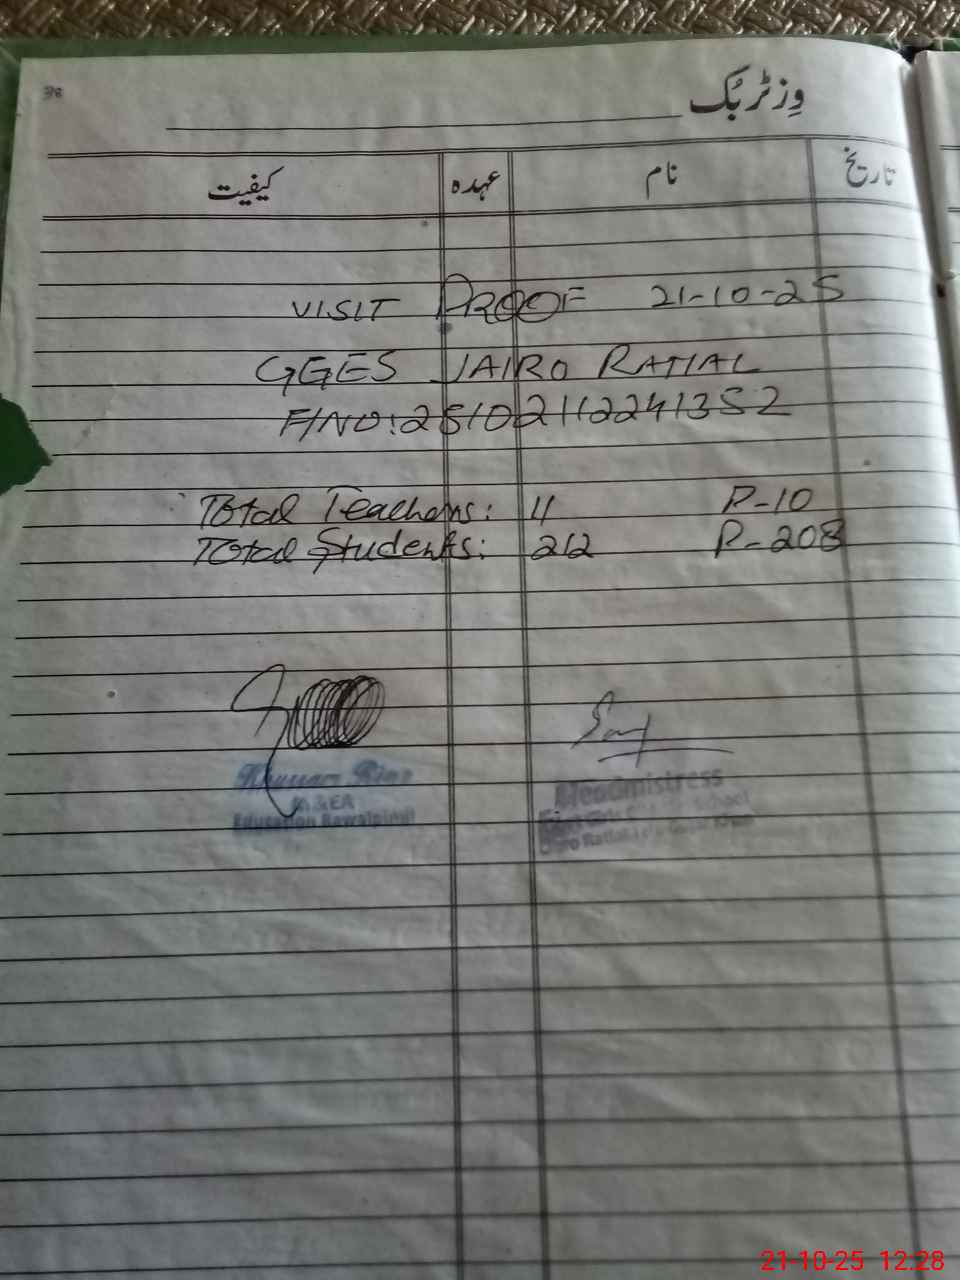 38
وِزٹر بُک
تاریخ نام عہدہ کیفیت
VISIT PROOF 21-10-25
GGES JAIRO RATIAL
F/NO: 25102112241352
Total Teachers: 11 P-10
Total Students: 212 P-208
Khurram Riaz
M&EA
Education Rawalpindi
Headmistress
School
Jairo Ratial Teh: Gujar Khan
21-10-25 12:28